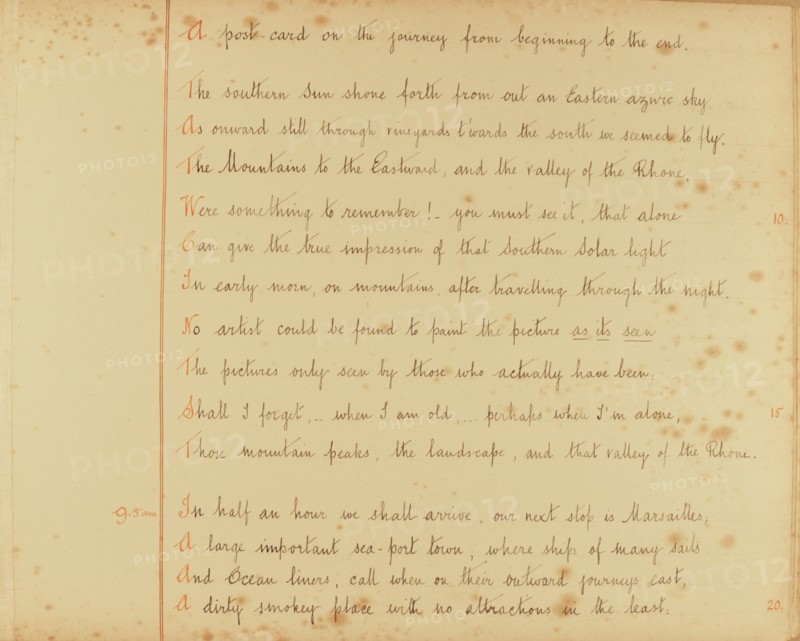 A post-card on the journey from beginning to the end.
The southern Sun shone forth from out an Eastern azure sky
As onward still through vineyards t'wards the south we seemed to fly.
The Mountains to the Eastward, and the valley of the Rhone.
Were something to remember! - you must see it, that alone 10.
Can give the true impression of that Southern Solar light
In early morn, on mountains, after travelling through the night.
No artist could be found to paint the picture as its seen
The pictures only seen by those who actually have been.
Shall I forget, .. when I am old, ... perhaps when I'm alone, 15
Those mountain peaks, the landscape, and that valley of the Rhone.
9.5am In half an hour we shall arrive, our next stop is Marsailles;
A large important sea-port town, where ships of many sails
And Ocean liners, call when on their outward journeys east,
A dirty smokey place with no attractions in the least. 20.
PHOTO12